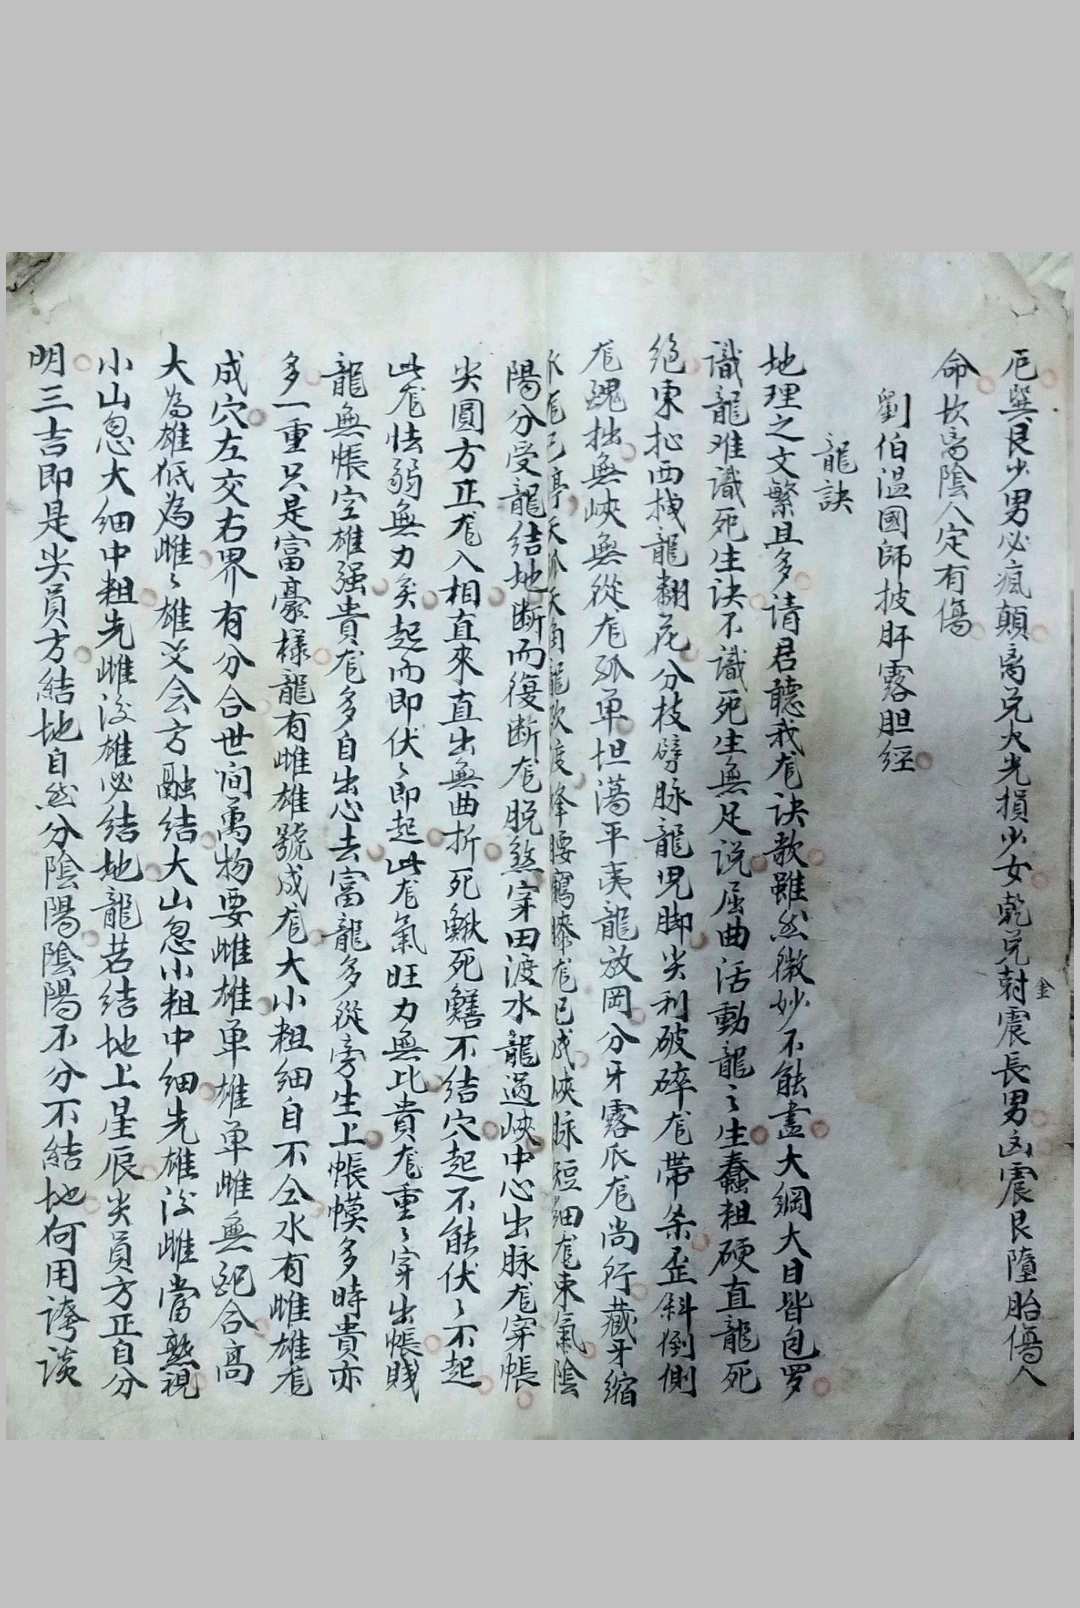 厄巽艮少男必瘋顛离兌火光損少女乾兌金尅震長男凶震艮墮胎傷人
命坎离陰人定有傷
劉伯溫國師披肝露胆經
龍訣
地理之文繁且多请君聽我尨诀歌雖然微妙不能盡大綱大目皆包罗
識龍难識死生诀不識死生無足说屈曲活動龍〻生蠢粗硬直龍死
絕東扯西拽龍翻花分枝劈脉龍児脚尖利破碎尨帶杀歪斜倒側
尨醜拙無峽無從尨孤单坦蕩平夷龍放岡分牙露爪尨尚行藏牙縮
腰鶴膝尨已成峽脉短细尨束氣陰
陽分受龍結地断而復断尨脱煞穿田渡水龍過峽中心出脉尨穿帳
尖圓方正尨入相直來直出無曲折死鰍死鱔不结穴起不能伏〻不起
此尨怯弱無力矣起而即伏〻即起此尨氣旺力無比貴尨重〻穿出帳賤
龍無帳空雄强貴尨多自出心去富龍多從旁生上帳幙多時貴亦
多一重只是富豪樣龍有雌雄號成尨大小粗细自不仝水有雌雄尨
成穴左交右界有分合世间萬物要雌雄单雄单雌無配合高
大為雄低為雌〻雄交会方融結大山忽小粗中细先雄後雌當熟視
小山忽大细中粗先雌後雄必結地龍若结地上星辰尖員方正自分
明三吉即是尖員方結地自然分陰陽陰陽不分不結地何用誇談